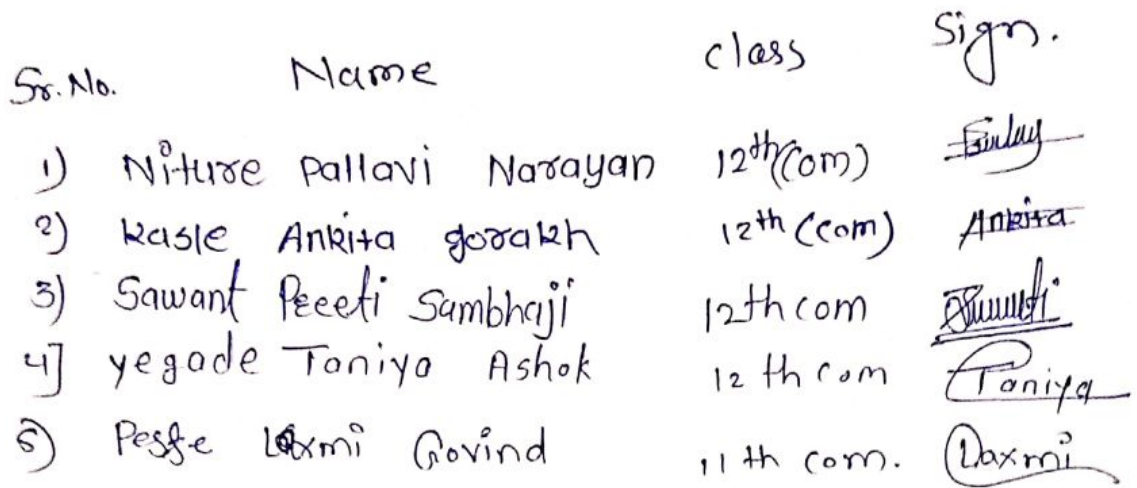 Sr. No. Name class Sign.
1) Niture Pallavi Narayan 12th (com)
2) Kasle Ankita gorakh 12th (com) Ankita
3) Sawant Preeti Sambhaji 12th com
4] yegade Taniya Ashok 12 th com Taniya
5) Laxmi Govind 11 th com. Laxmi